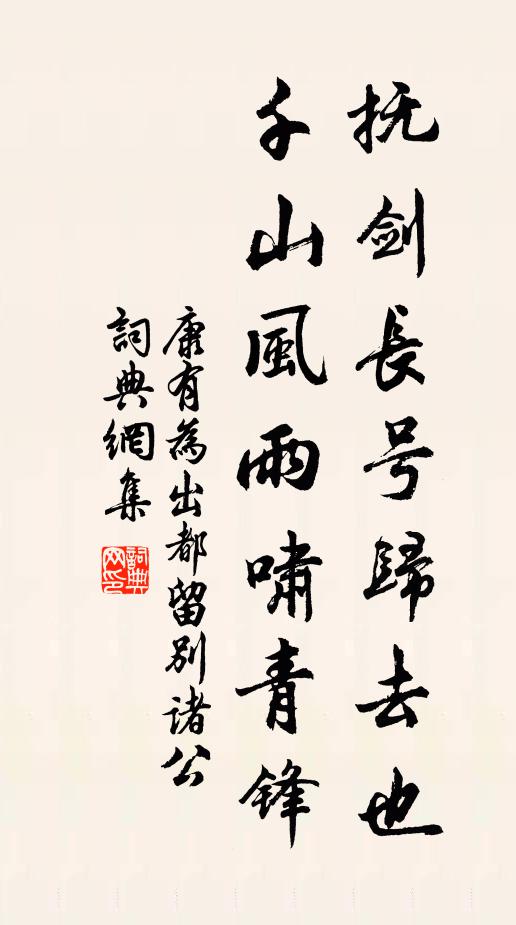 抚剑長号歸去也
千山風雨嘯青鋒
康有為出都留别诸公
詞典網集
詞典網印